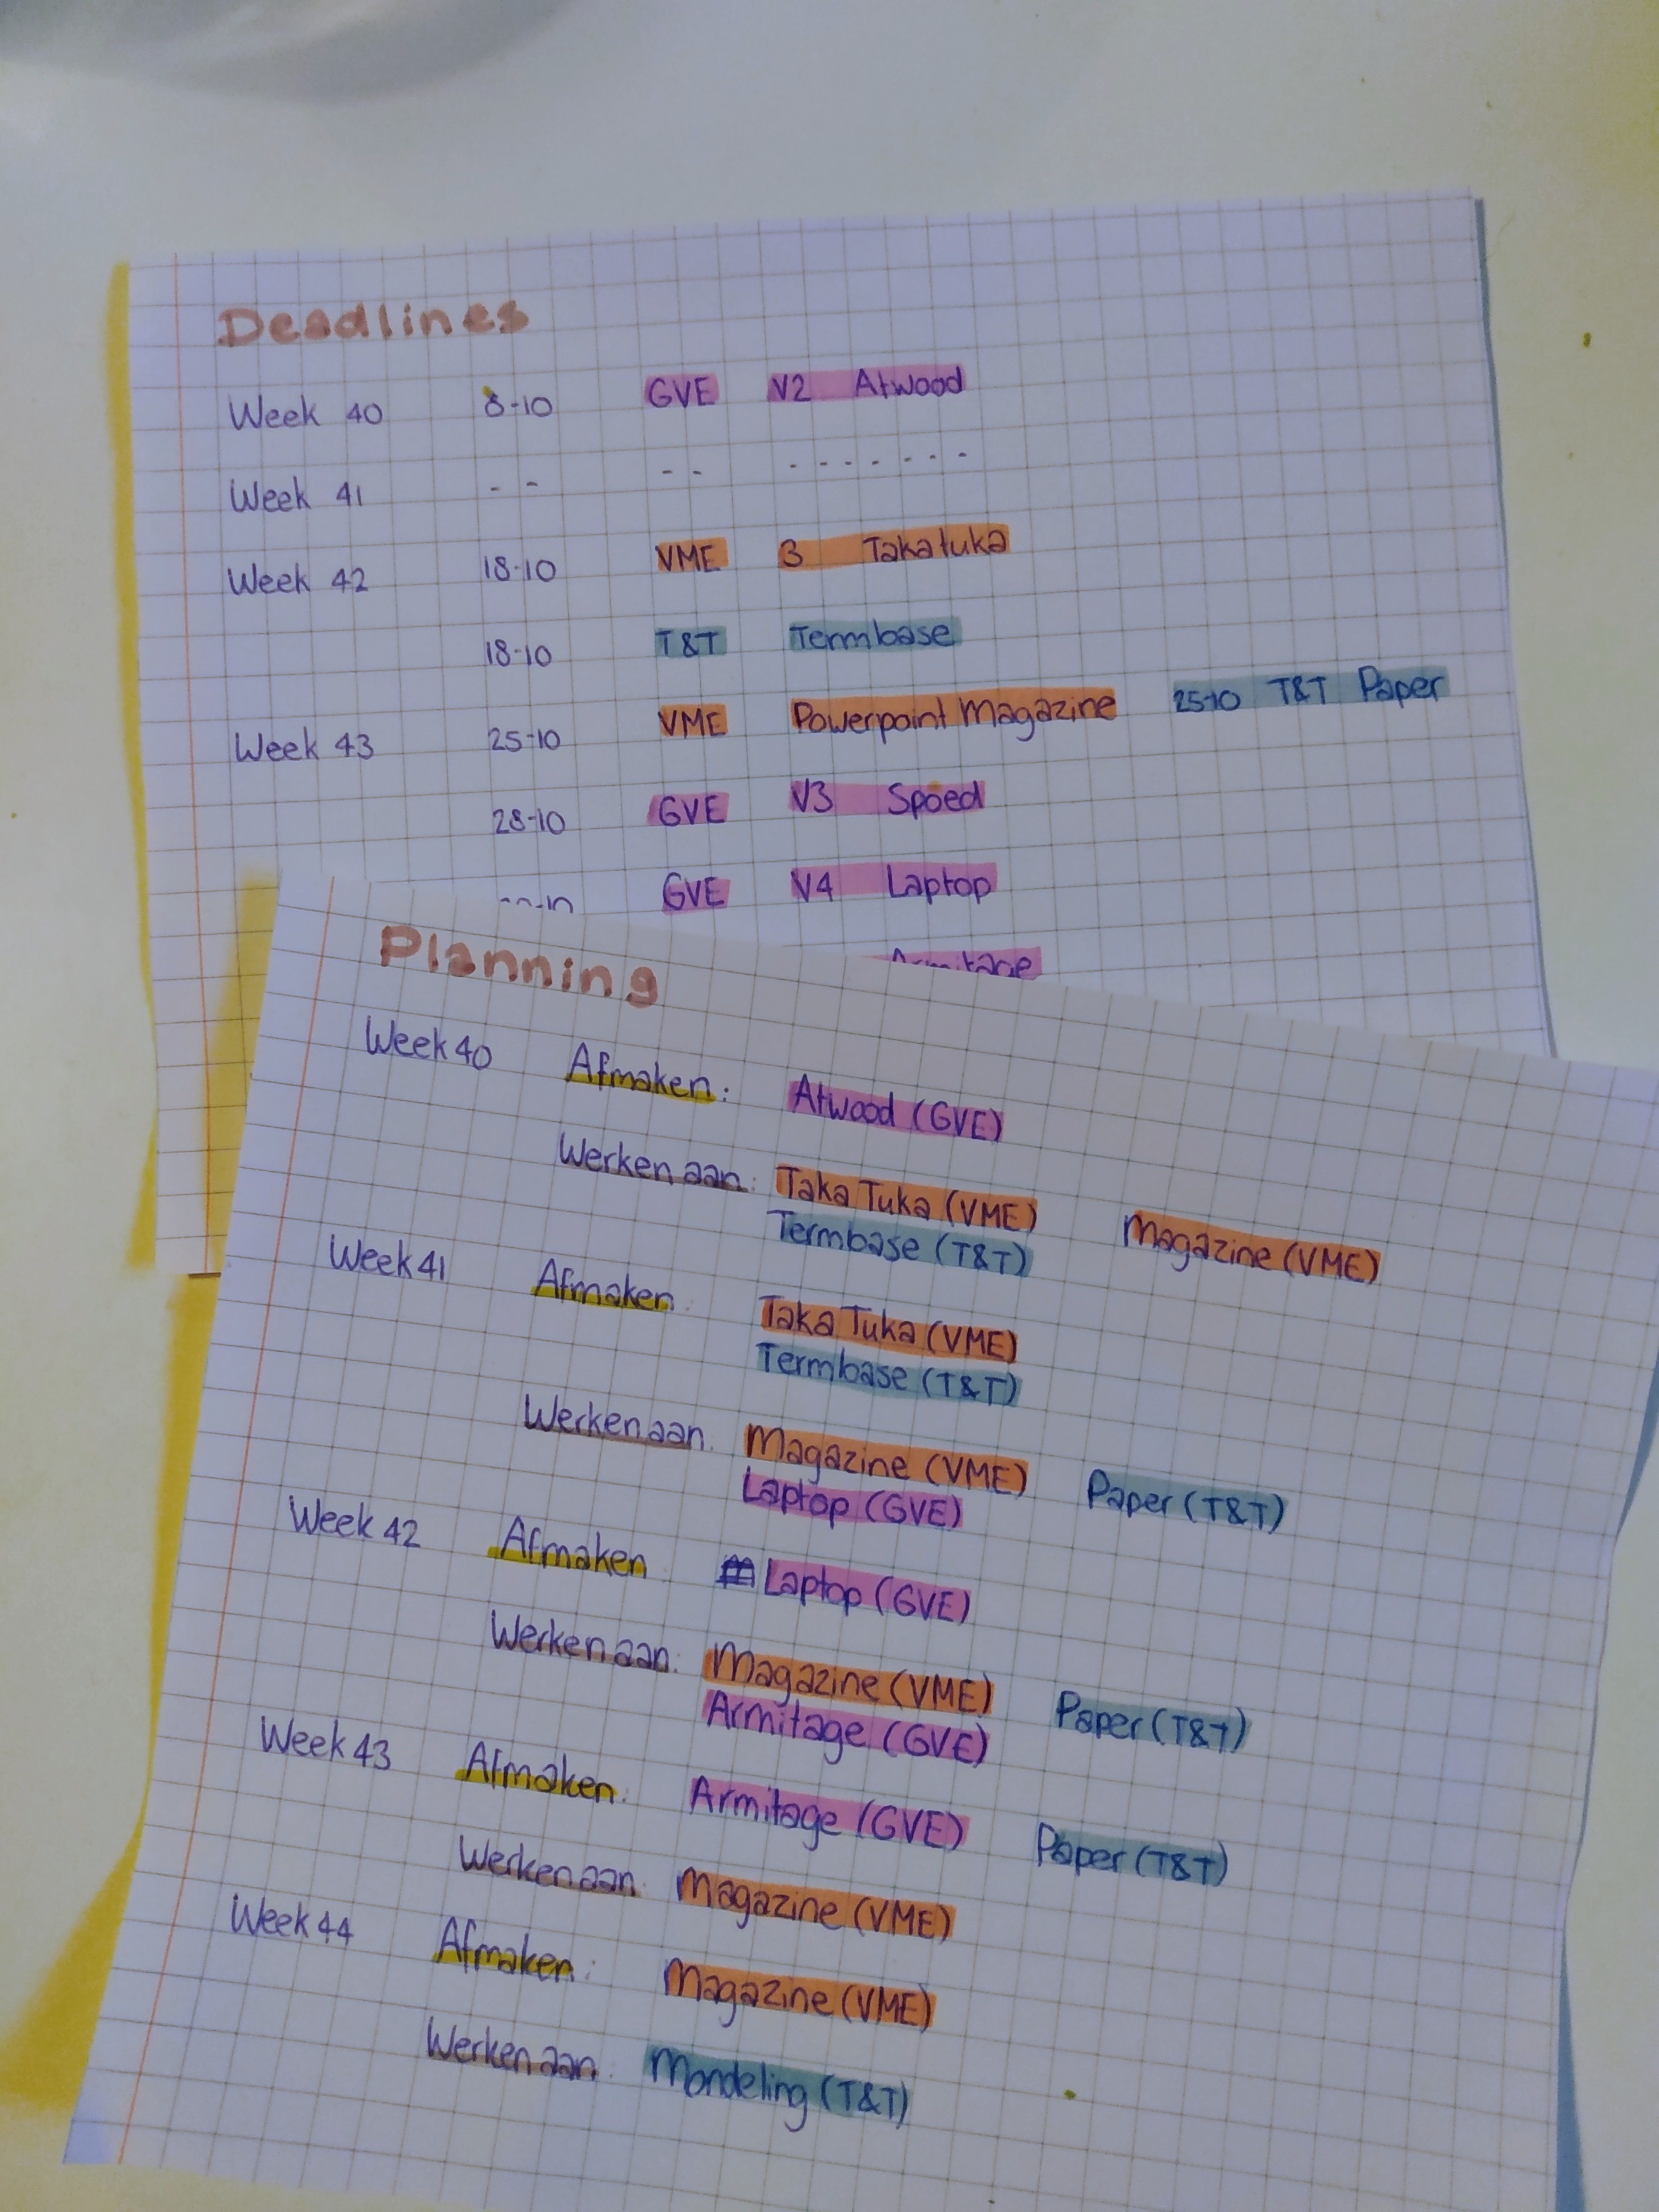 Deadlines
Week 40 8-10 GVE V2 Atwood
Week 41 - - - - - - - - - - -
Week 42 18-10 VME 3 Takatuka
18-10 T&T Termbase
Week 43 25-10 VME Powerpoint Magazine 25-10 T&T Paper
28-10 GVE V3 Spoed
GVE V4 Laptop
Armitage
Planning
Week 40 Afmaken: Atwood (GVE)
Werken aan: Taka Tuka (VME) Magazine (VME)
Termbase (T&T)
Week 41 Afmaken: Taka Tuka (VME)
Termbase (T&T)
Werken aan: Magazine (VME) Paper (T&T)
Laptop (GVE)
Week 42 Afmaken: Laptop (GVE)
Werken aan: Magazine (VME) Paper (T&T)
Armitage (GVE)
Week 43 Afmaken: Armitage (GVE) Paper (T&T)
Werken aan: Magazine (VME)
Week 44 Afmaken: Magazine (VME)
Werken aan: Mondeling (T&T)